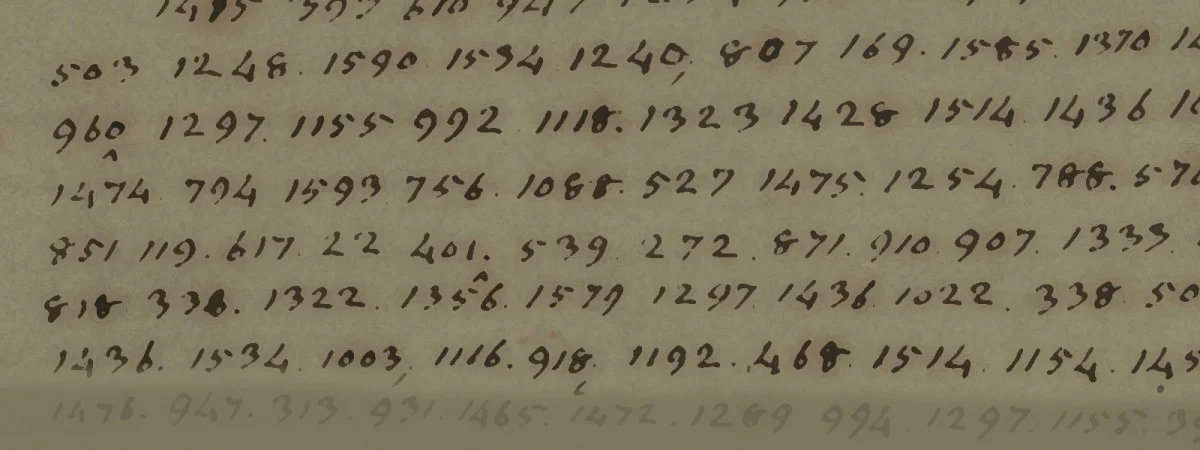 503 1248. 1590 1534 1240, 807 169. 1585. 1370
960 1297. 1155 992 1118. 1323 1428 1514. 1436
1474 794 1593 756. 1088. 527 1475. 1254. 788.
851 119. 617. 22 401. 539 272. 871. 910. 907. 1333.
818 338. 1322. 1356. 1579 1297 1436. 1022. 338
1436. 1534. 1003, 1116. 918. 1192. 468. 1514. 1154.
1476. 947. 313. 931. 1465. 1472. 1289 994 1297. 1155.